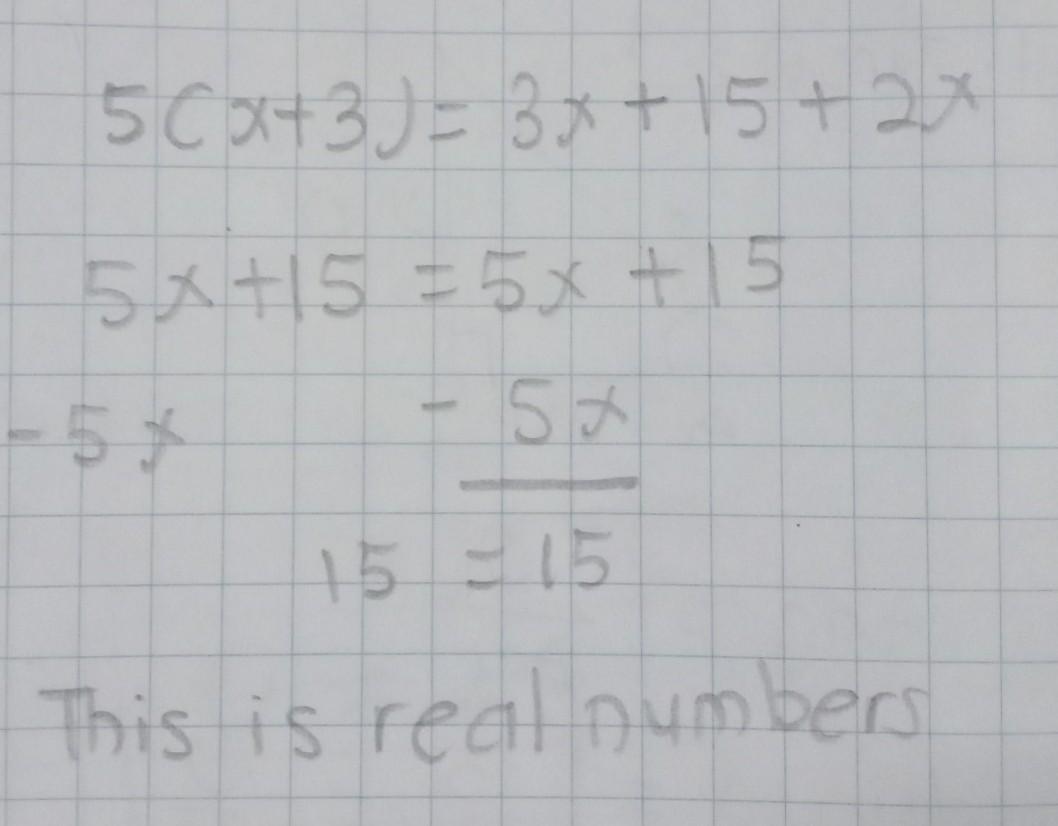 5(x+3)= 3x+15+2x
5x+15 =5x +15
-5x - 5x
15 =15
This is real numbers